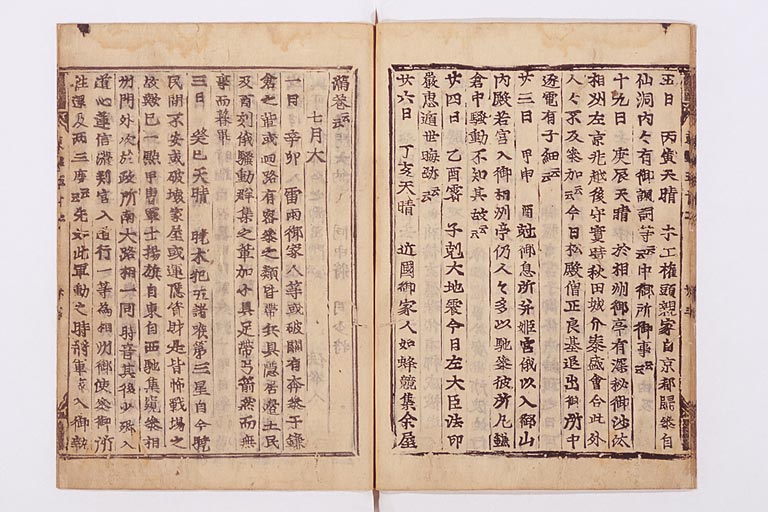 五日　丙寅天晴　木工權頭親家自京都歸參自
仙洞内々有御諷詞等云々中御所御事云々
十九日　庚辰天晴　於相州御亭有深秘御沙汰
相州左京兆越後守實時秋田城介泰盛會合此外
人々不及參加云々今日松殿僧正良基退出御所中
逐電有子細云々
廿三日　甲申　酉尅御息所并姫宮俄以入御山
内殿若宮入御相州亭仍人々多以馳參彼所凢鎌
倉中騒動不知其故云々
廿四日　乙酉霽　子尅大地震今日左大臣法印
嚴惠遁世晦跡云々
廿六日　丁亥天晴　近國御家人如蜂競集余屋
満巷云々
七月大
一日　辛卯　雷雨御家人等或破關有奔參于鎌
倉之輩或廻路有容參之類皆帶兵具隱居邊土民
及酉刻俄騒動群集之輩加分具足帶弓箭然而無
事而暮畢
三日　癸巳天晴　晩木犯五諸侯第三星自今曉
民間不安或破壞家屋或運隱資財是皆怖戰場之
故歟巳一點甲冑軍士揚旗自東自西馳集窺參相
州門外次於政所南大路相一同時音其後少卿入
道心蓮信濃判官入道行一等為相州御使參御所
往還及兩三度云々先如此軍動之時將軍家入御執